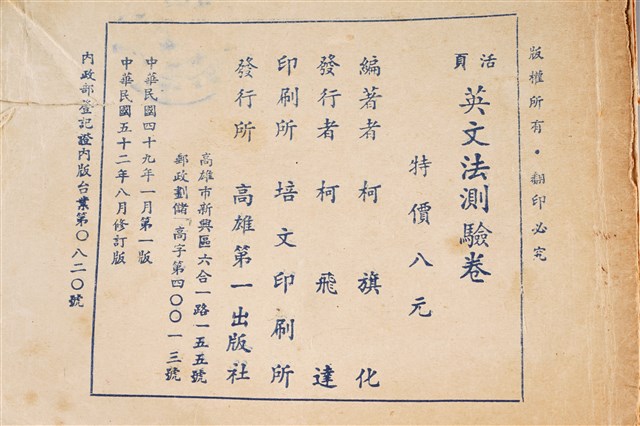 版權所有・翻印必究
活頁 英文法測驗卷
特價八元
編著者 柯旗化
發行者 柯飛達
印刷所 培文印刷所
發行所 高雄第一出版社
高雄市新興區六合一路一五五號
郵政劃儲高字第四〇〇一三號
中華民國四十九年一月第一版
中華民國五十二年八月修訂版
內政部登記證內版台業第〇八二〇號